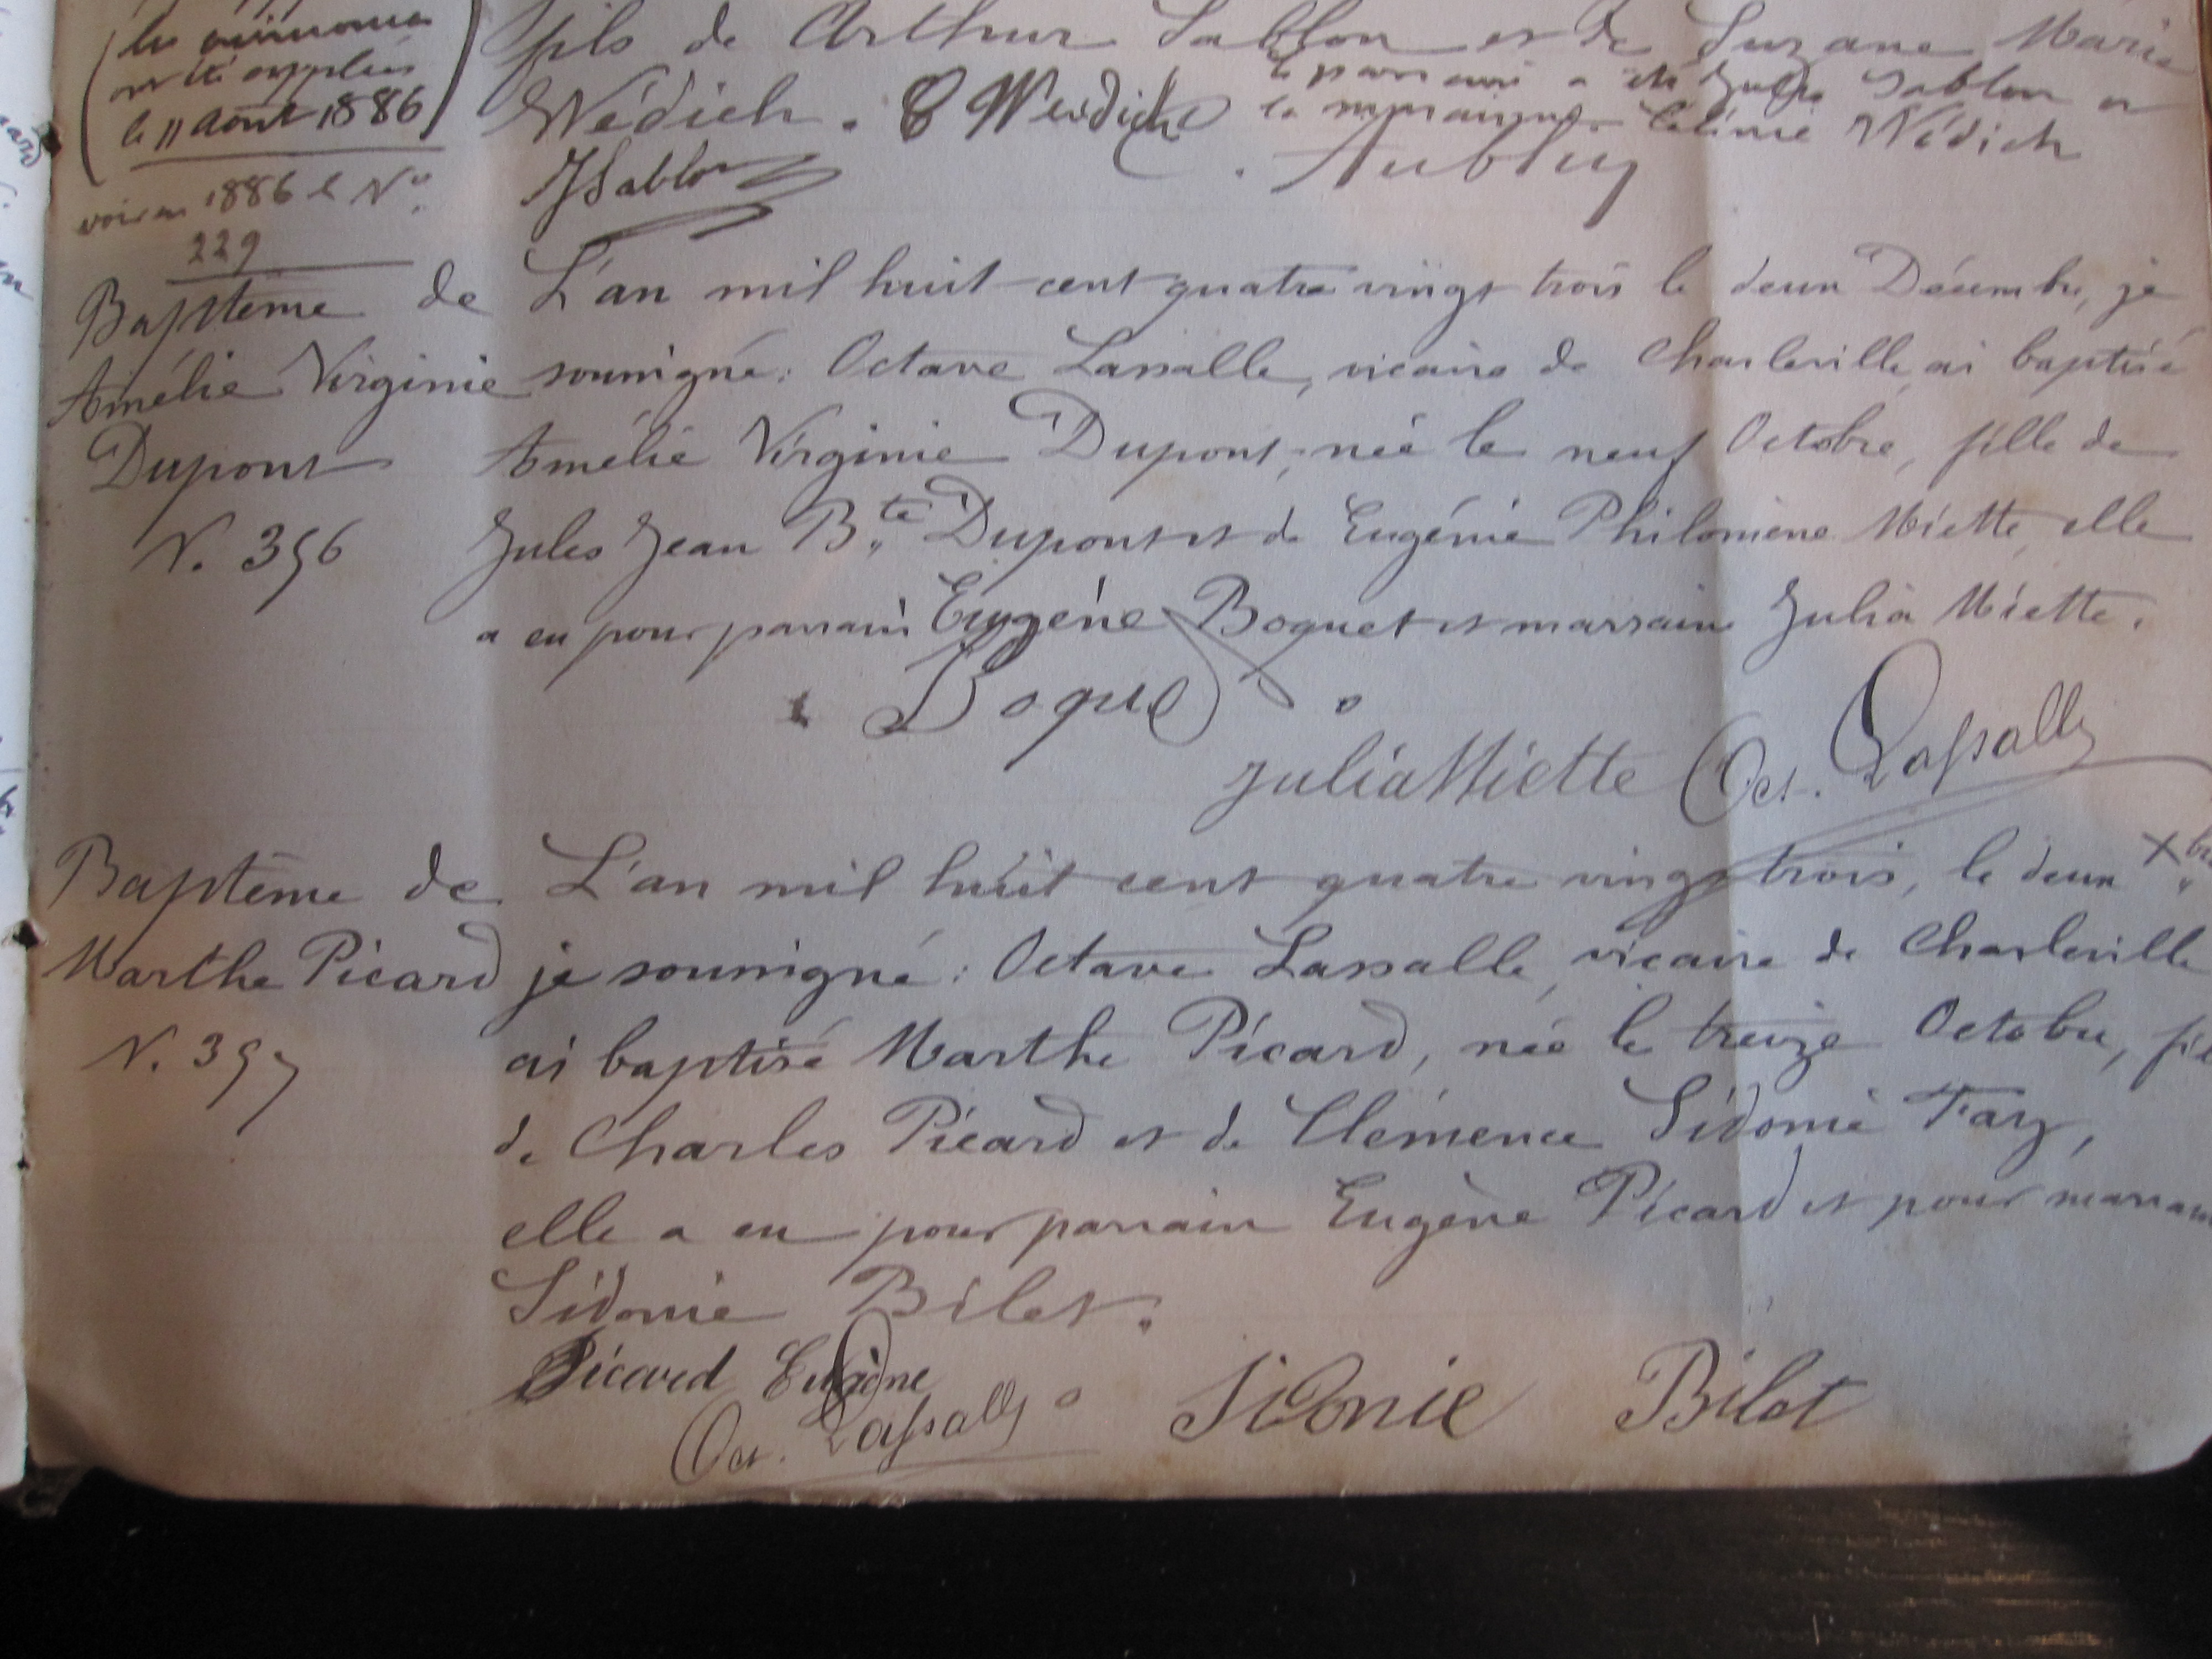 les cérémonies
ont été suppléées
le 11 Août 1886
voir en 1886 le N°
229
fils de Arthur Sablon et de Suzane Marie
Wédich. C Weudich le parrain a été Jules Sablon et
la marraine Célinie Wédich
JSablon Aubluy
Baptême de
Amélie Virginie
Dupont
N. 356
L'an mil huit cent quatre vingt trois le deux Décembre, je
soussigné: Octave Lassalle, vicaire de Charleville, ai baptisé
Amélie Virginie Dupont, née le neuf Octobre, fille de
Jules Jean B.te Dupont et de Eugénie Philomène Miette, elle
a eu pour parrain Eugène Boquet et marraine Julia Miette.
Boquet
Julia Miette Oct. Lassalle
Baptême de
Marthe Picard
N. 357
L'an mil huit cent quatre vingt trois, le deux Xbre
je soussigné: Octave Lassalle, vicaire de Charleville
ai baptisé Marthe Picard, née le treize Octobre,
de Charles Picard et de Clémence Sidonie Fay,
elle a eu pour parrain Eugène Picard et pour marraine
Sidonie Bilet.
Picard Eugène
Oct. Lassalle Sidonie Bilot